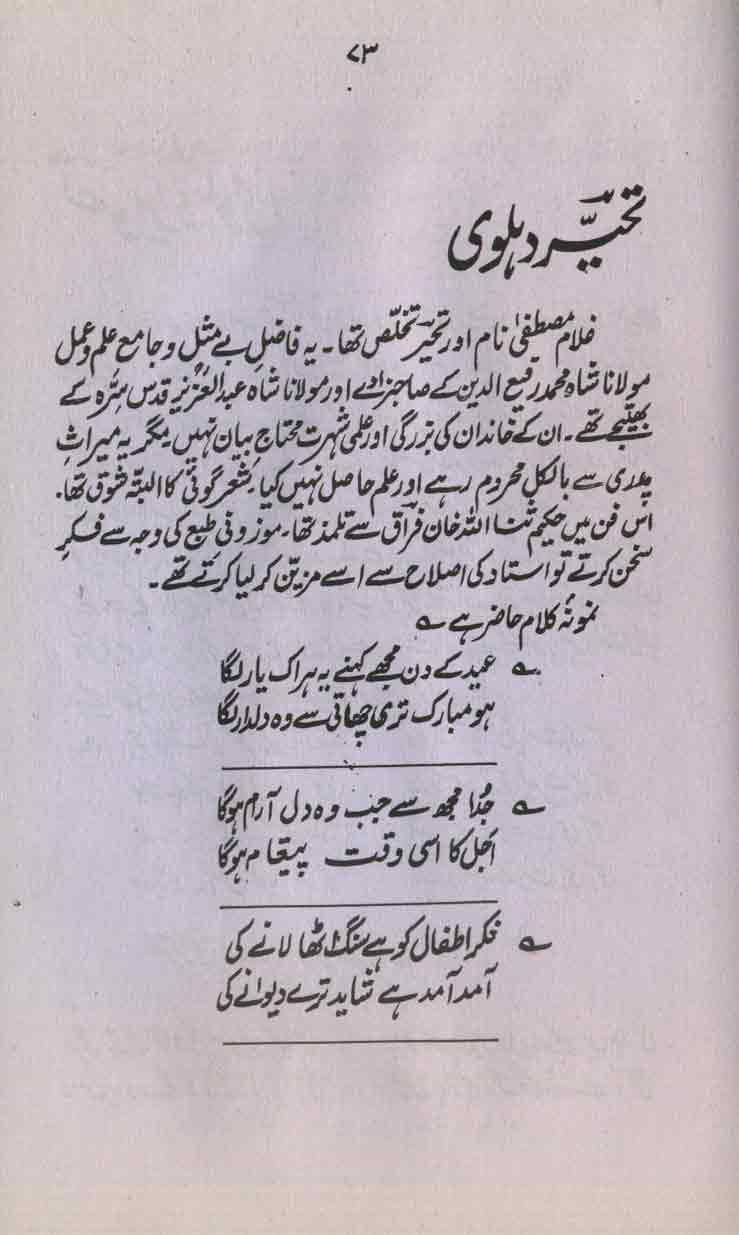 ۷۳
تحیّر دہلوی
غلام مصطفیٰ نام اور تحیّر تخلّص تھا۔ یہ فاضلِ بے مثل و جامع علم و عمل
مولانا شاہ محمد رفیع الدین کے صاحبزادے اور مولانا شاہ عبد العزیز قدس سِرّہ کے
بھتیجے تھے۔ ان کے خاندان کی بزرگی اور علمی شہرت محتاجِ بیان نہیں۔ مگر یہ میراثِ
پدری سے بالکل محروم رہے اور علم حاصل نہیں کیا۔ شعر گوئی کا البتّہ شوق تھا۔
اس فن میں حکیم ثنا اللہ خان فراق سے تلمذ تھا۔ موزونی طبع کی وجہ سے فکرِ
سخن کرتے تو استاد کی اصلاح سے اسے مزیّن کر لیا کرتے تھے۔
نمونۂ کلام حاضر ہے ؎
؎ عید کے دن مجھے کہنے یہ ہر اک یار لگا
ہو مبارک تری چھاتی سے وہ دلدار لگا
؎ جُدا مجھ سے جب وہ دل آرام ہوگا
اجل کا اسی وقت پیغام ہوگا
؎ فکر اطفال کو ہے سنگ اٹھا لانے کی
آمد آمد ہے شاید ترے دیوانے کی